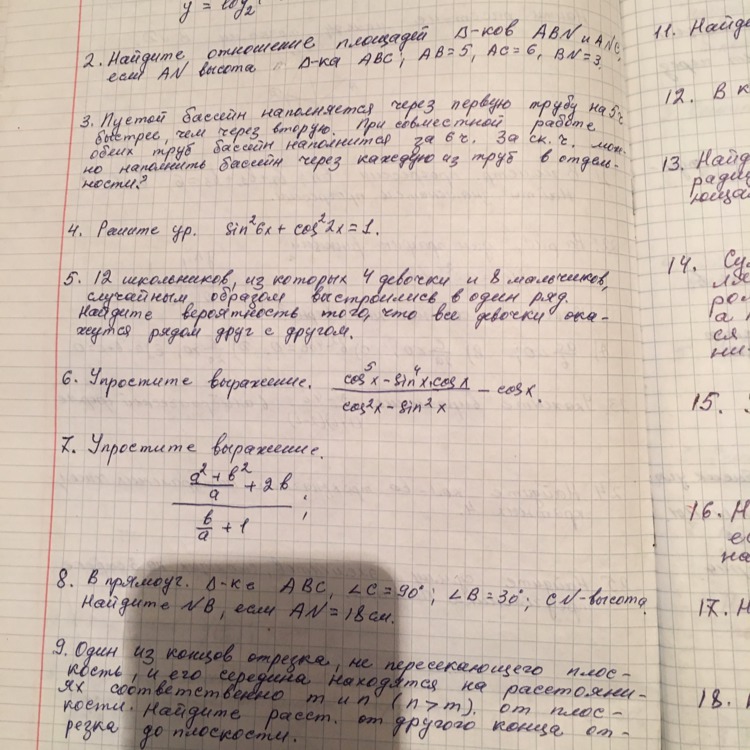 y = log₂
2. Найдите отношение площадей Δ-ков ABN и ANC,
если AN высота Δ-ка ABC, AB=5, AC=6, BN=3.
3. Пустой бассейн наполняется через первую трубу на 5 ч
быстрее, чем через вторую. При совместной работе
обеих труб бассейн наполнится за 6 ч. За ск. ч. мож-
но наполнить бассейн через каждую из труб в отдель-
ности?
4. Решите ур. sin²6x + cos²2x = 1.
5. 12 школьников, из которых 4 девочки и 8 мальчиков,
случайным образом выстроились в один ряд.
Найдите вероятность того, что все девочки ока-
жутся рядом друг с другом.
6. Упростите выражение. (cos⁵x − sin⁴x·cosx)/(cos²x − sin²x) − cosx.
7. Упростите выражение.
((a² + b²)/a + 2b)/(b/a + 1);
8. В прямоуг. Δ-ке ABC, ∠C=90°; ∠B=30°; CN-высота.
Найдите NB, если AN=18см.
9. Один из концов отрезка, не пересекающего плос-
кость, и его середина находятся на расстояни-
ях соответственно m и n (n>m). от плос-
кости. Найдите расст. от другого конца от-
резка до плоскости.
11. Найд
12. В к
13. Найд
радиу
ющая
14. Су
ля
ром
а п
ся
ни-
15.
16. Н
ес
на
17. Н
18.